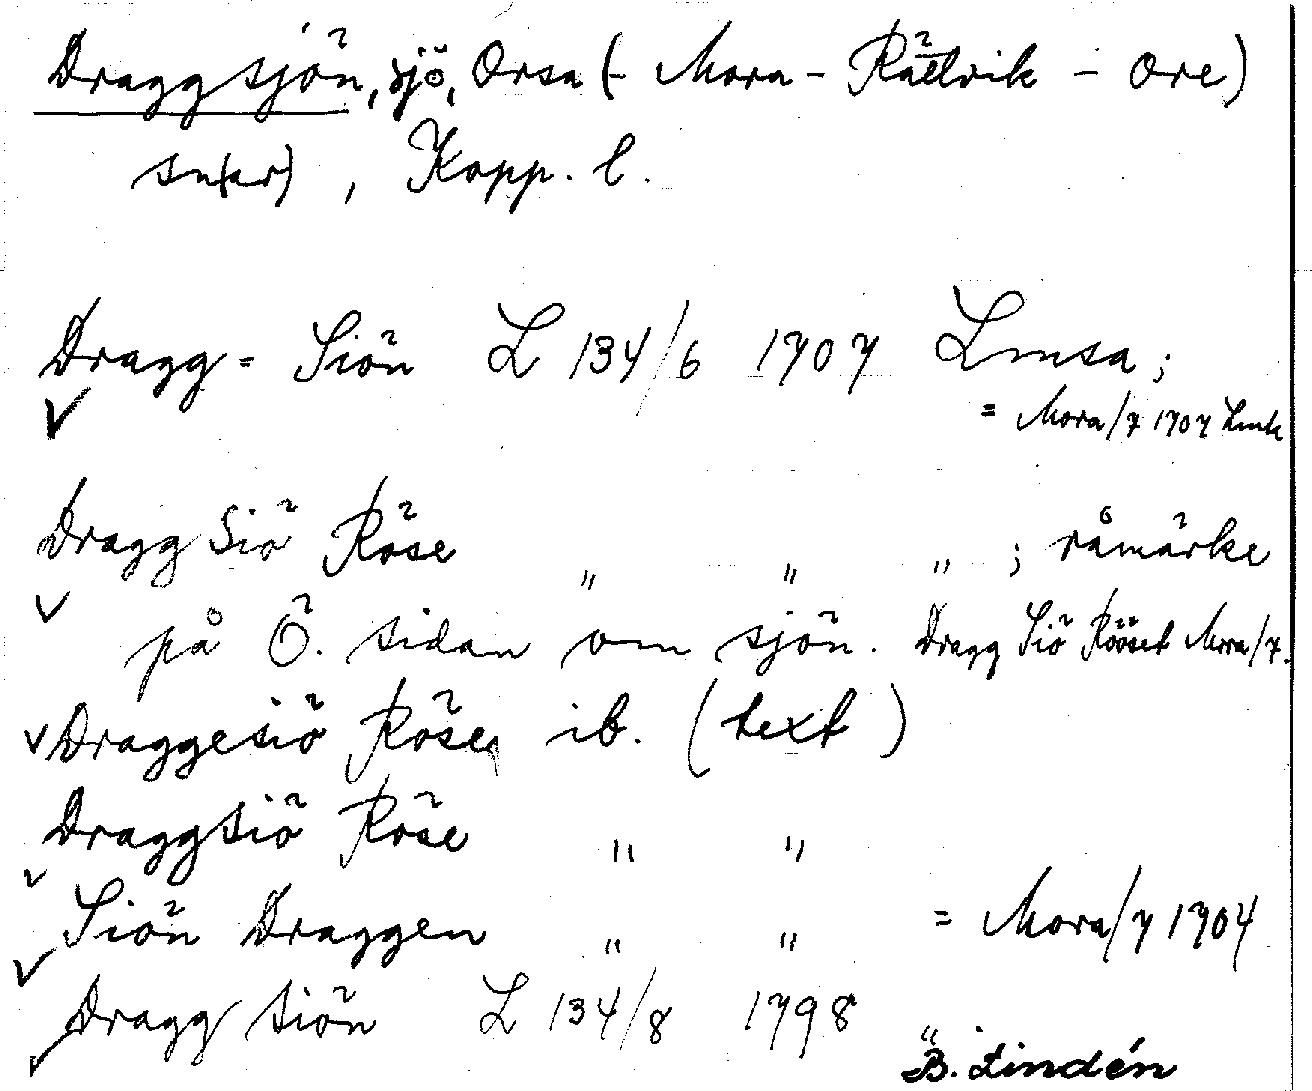 Draggsjön, sjö, Orsa (- Mora - Rättvik - Ore)
sn(ar), Kopp. l.
Dragg = Siön L 134/6 1707 Lmsa;
= Mora/7 1707 Lmk
Dragg Siö Röse " " " ; råmärke
på Ö. sidan om sjön. Dragg Siö Rööset Mora/7.
Draggesiö Röse ib. (text)
Draggsiö Röse " "
Siön Draggen " " = Mora/7 1704
Dragg siön L 134/8 1798 "
B. Lindén